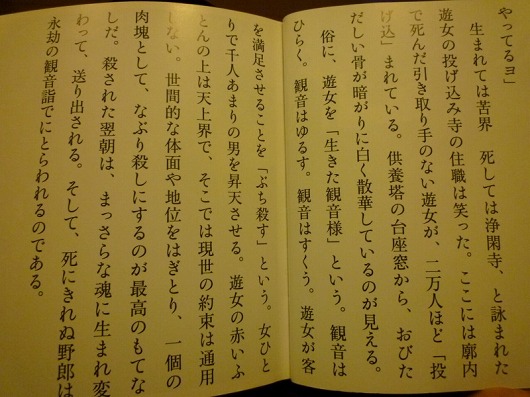 やってるヨ」
生まれては苦界　死しては浄閑寺、と詠まれた
遊女の投げ込み寺の住職は笑った。ここには廓内
で死んだ引き取り手のない遊女が、二万人ほど「投
げ込」まれている。供養塔の台座窓から、おびた
だしい骨が暗がりに白く散華しているのが見える。
俗に、遊女を「生きた観音様」という。観音は
ひらく。観音はゆるす。観音はすくう。遊女が客
を満足させることを「ぶち殺す」という。女ひと
りで千人あまりの男を昇天させる。遊女の赤いふ
とんの上は天上界で、そこでは現世の約束は通用
しない。世間的な体面や地位をはぎとり、一個の
肉塊として、なぶり殺しにするのが最高のもてな
しだ。殺された翌朝は、まっさらな魂に生まれ変
わって、送り出される。そして、死にきれぬ野郎は
永劫の観音詣でにとらわれるのである。